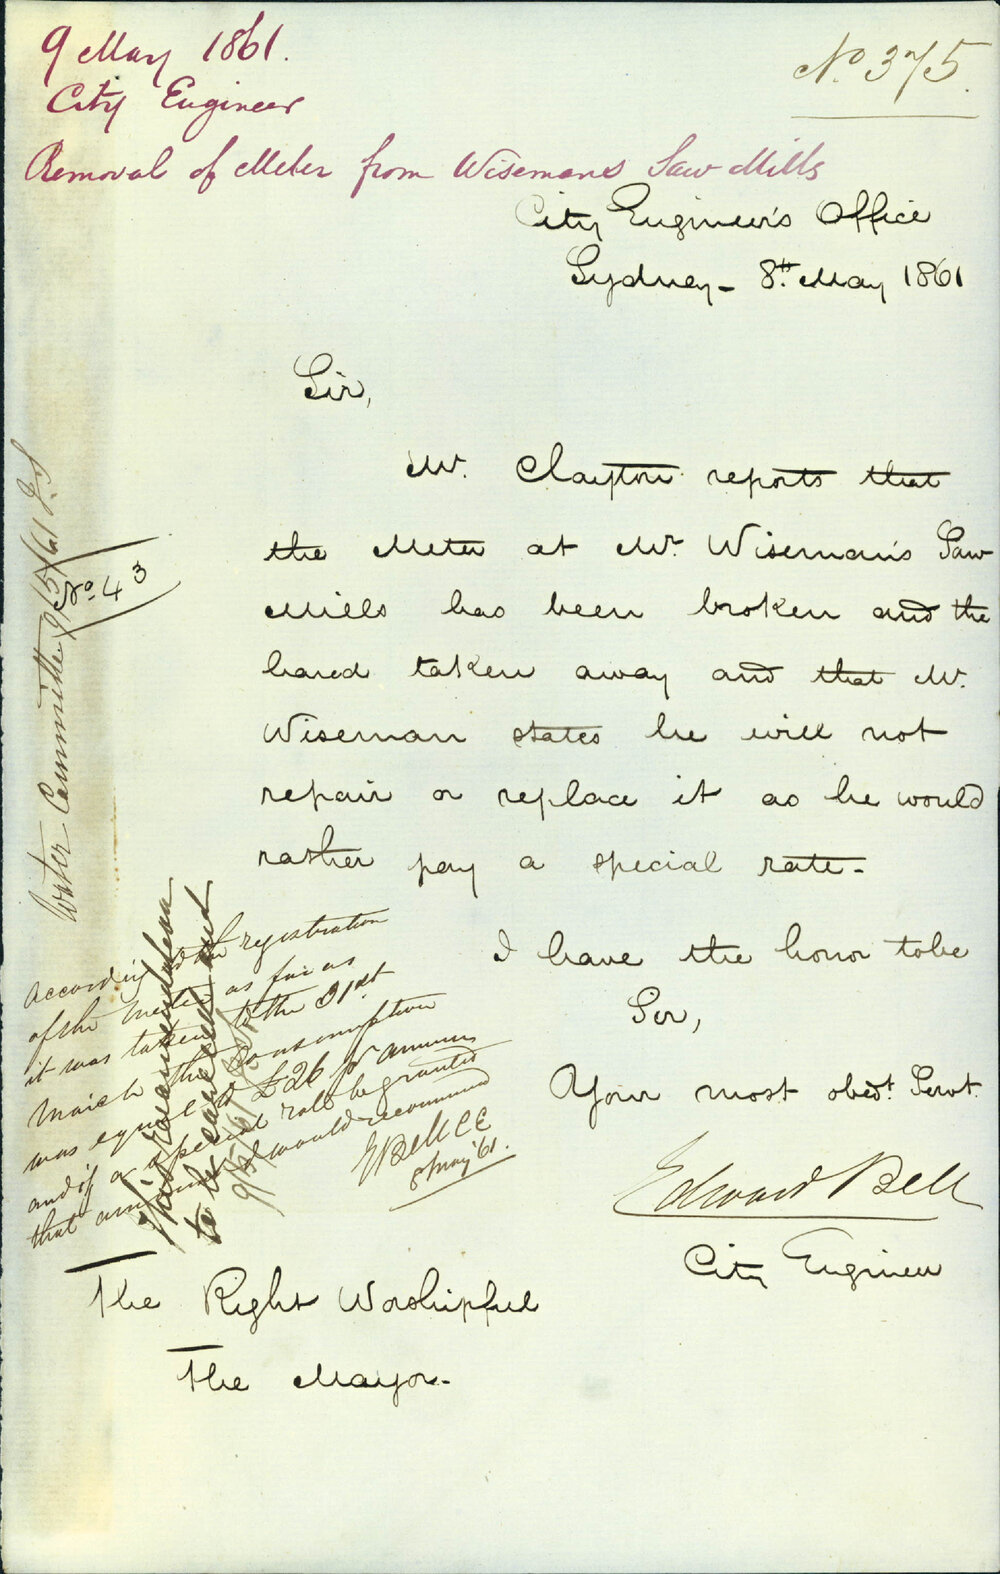 9 May 1861.
City Engineer
No. 375.
Removal of Meter from Wisemans Saw Mills
City Engineer's Office
Sydney - 8th May 1861
Sir,
Mr. Clayton reports that
the Meter at Mr. Wiseman's Saw
Mills has been broken and the
taken away and that Mr.
Wiseman states he will not
repair or replace it as he would
rather pay a special rate.
I have the honor to be
Sir,
Your most obedt. Servt.
Edward Bell
City Engineer
The Right Worshipful
The Mayor.
Water Committee 9/5/61
No. 43
According to the registration
of the Meter as far as
it was taken to the 31st
March the consumption
was equal to £26 pr annum
and if a special rate be granted
that amount I would recommend
E Bell CE
8 May '61.
to be carried out
9/5/61